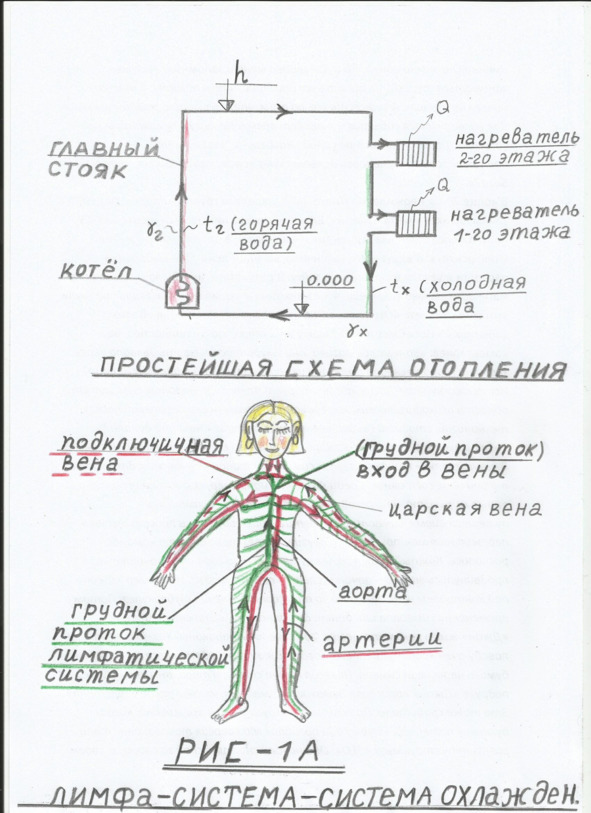 h
Q
ГЛАВНЫЙ
СТОЯК
нагреватель
2-го этажа
Q
нагреватель
1-го этажа
γг
tг (горячая
вода)
котёл
0.000
tх (холодная
вода
γх
ПРОСТЕЙШАЯ СХЕМА ОТОПЛЕНИЯ
подключичная
вена
(грудной проток)
вход в вены
царская вена
аорта
грудной
проток
лимфатической
системы
артерии
РИС-1А
ЛИМФА-СИСТЕМА-СИСТЕМА ОХЛАЖДЕН.